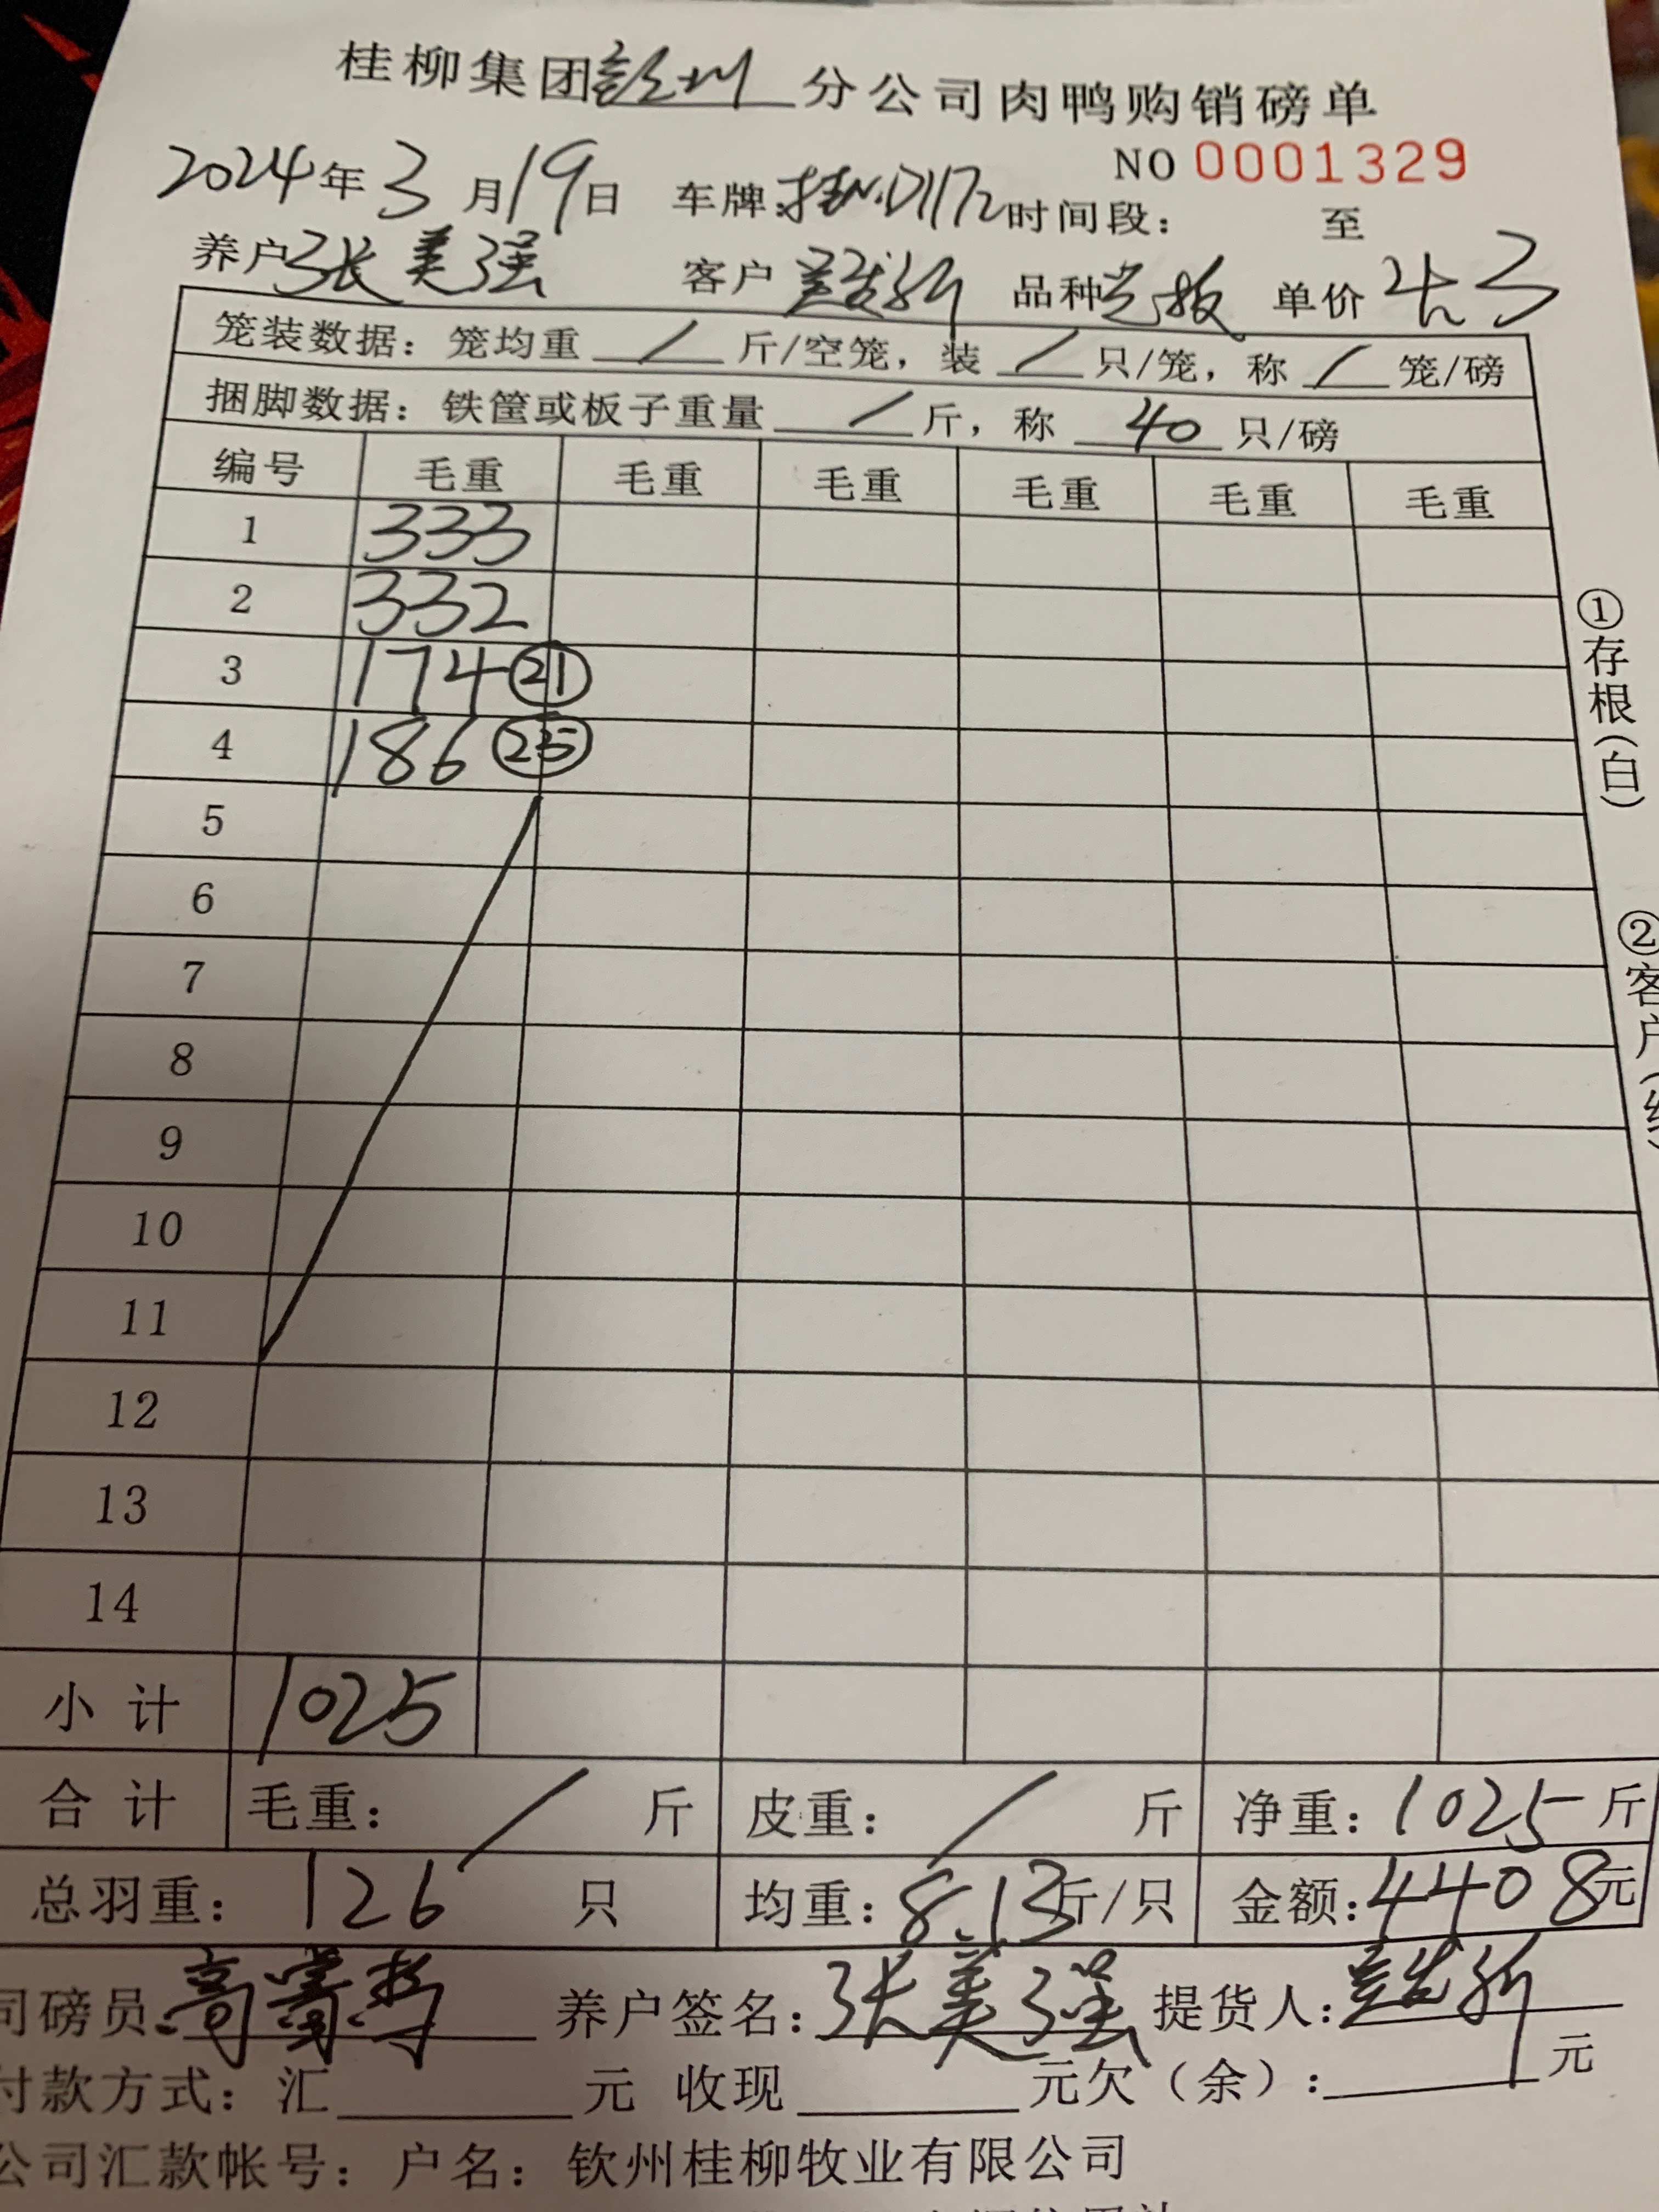 桂柳集团钦州分公司肉鸭购销磅单
NO 0001329
2024年3月19日 车牌:桂N.D1172 时间段: 至
养户 张美强 客户 品种 单价 4.3
笼装数据:笼均重 / 斤/空笼,装 / 只/笼,称 / 笼/磅
捆脚数据:铁筐或板子重量 / 斤,称 40 只/磅
编号 毛重 毛重 毛重 毛重 毛重 毛重
1 333
2 332
3 174 21
4 186 25
5
6
7
8
9
10
11
12
13
14
小计 1025
合计 毛重: / 斤 皮重: / 斤 净重:1025斤
总羽重:126只 均重:8.13斤/只 金额:4408元
司磅员: 养户签名:张美强 提货人:
付款方式:汇 元 收现 元欠(余): 元
公司汇款帐号:户名:钦州桂柳牧业有限公司
①存根(白)
②客户(红)